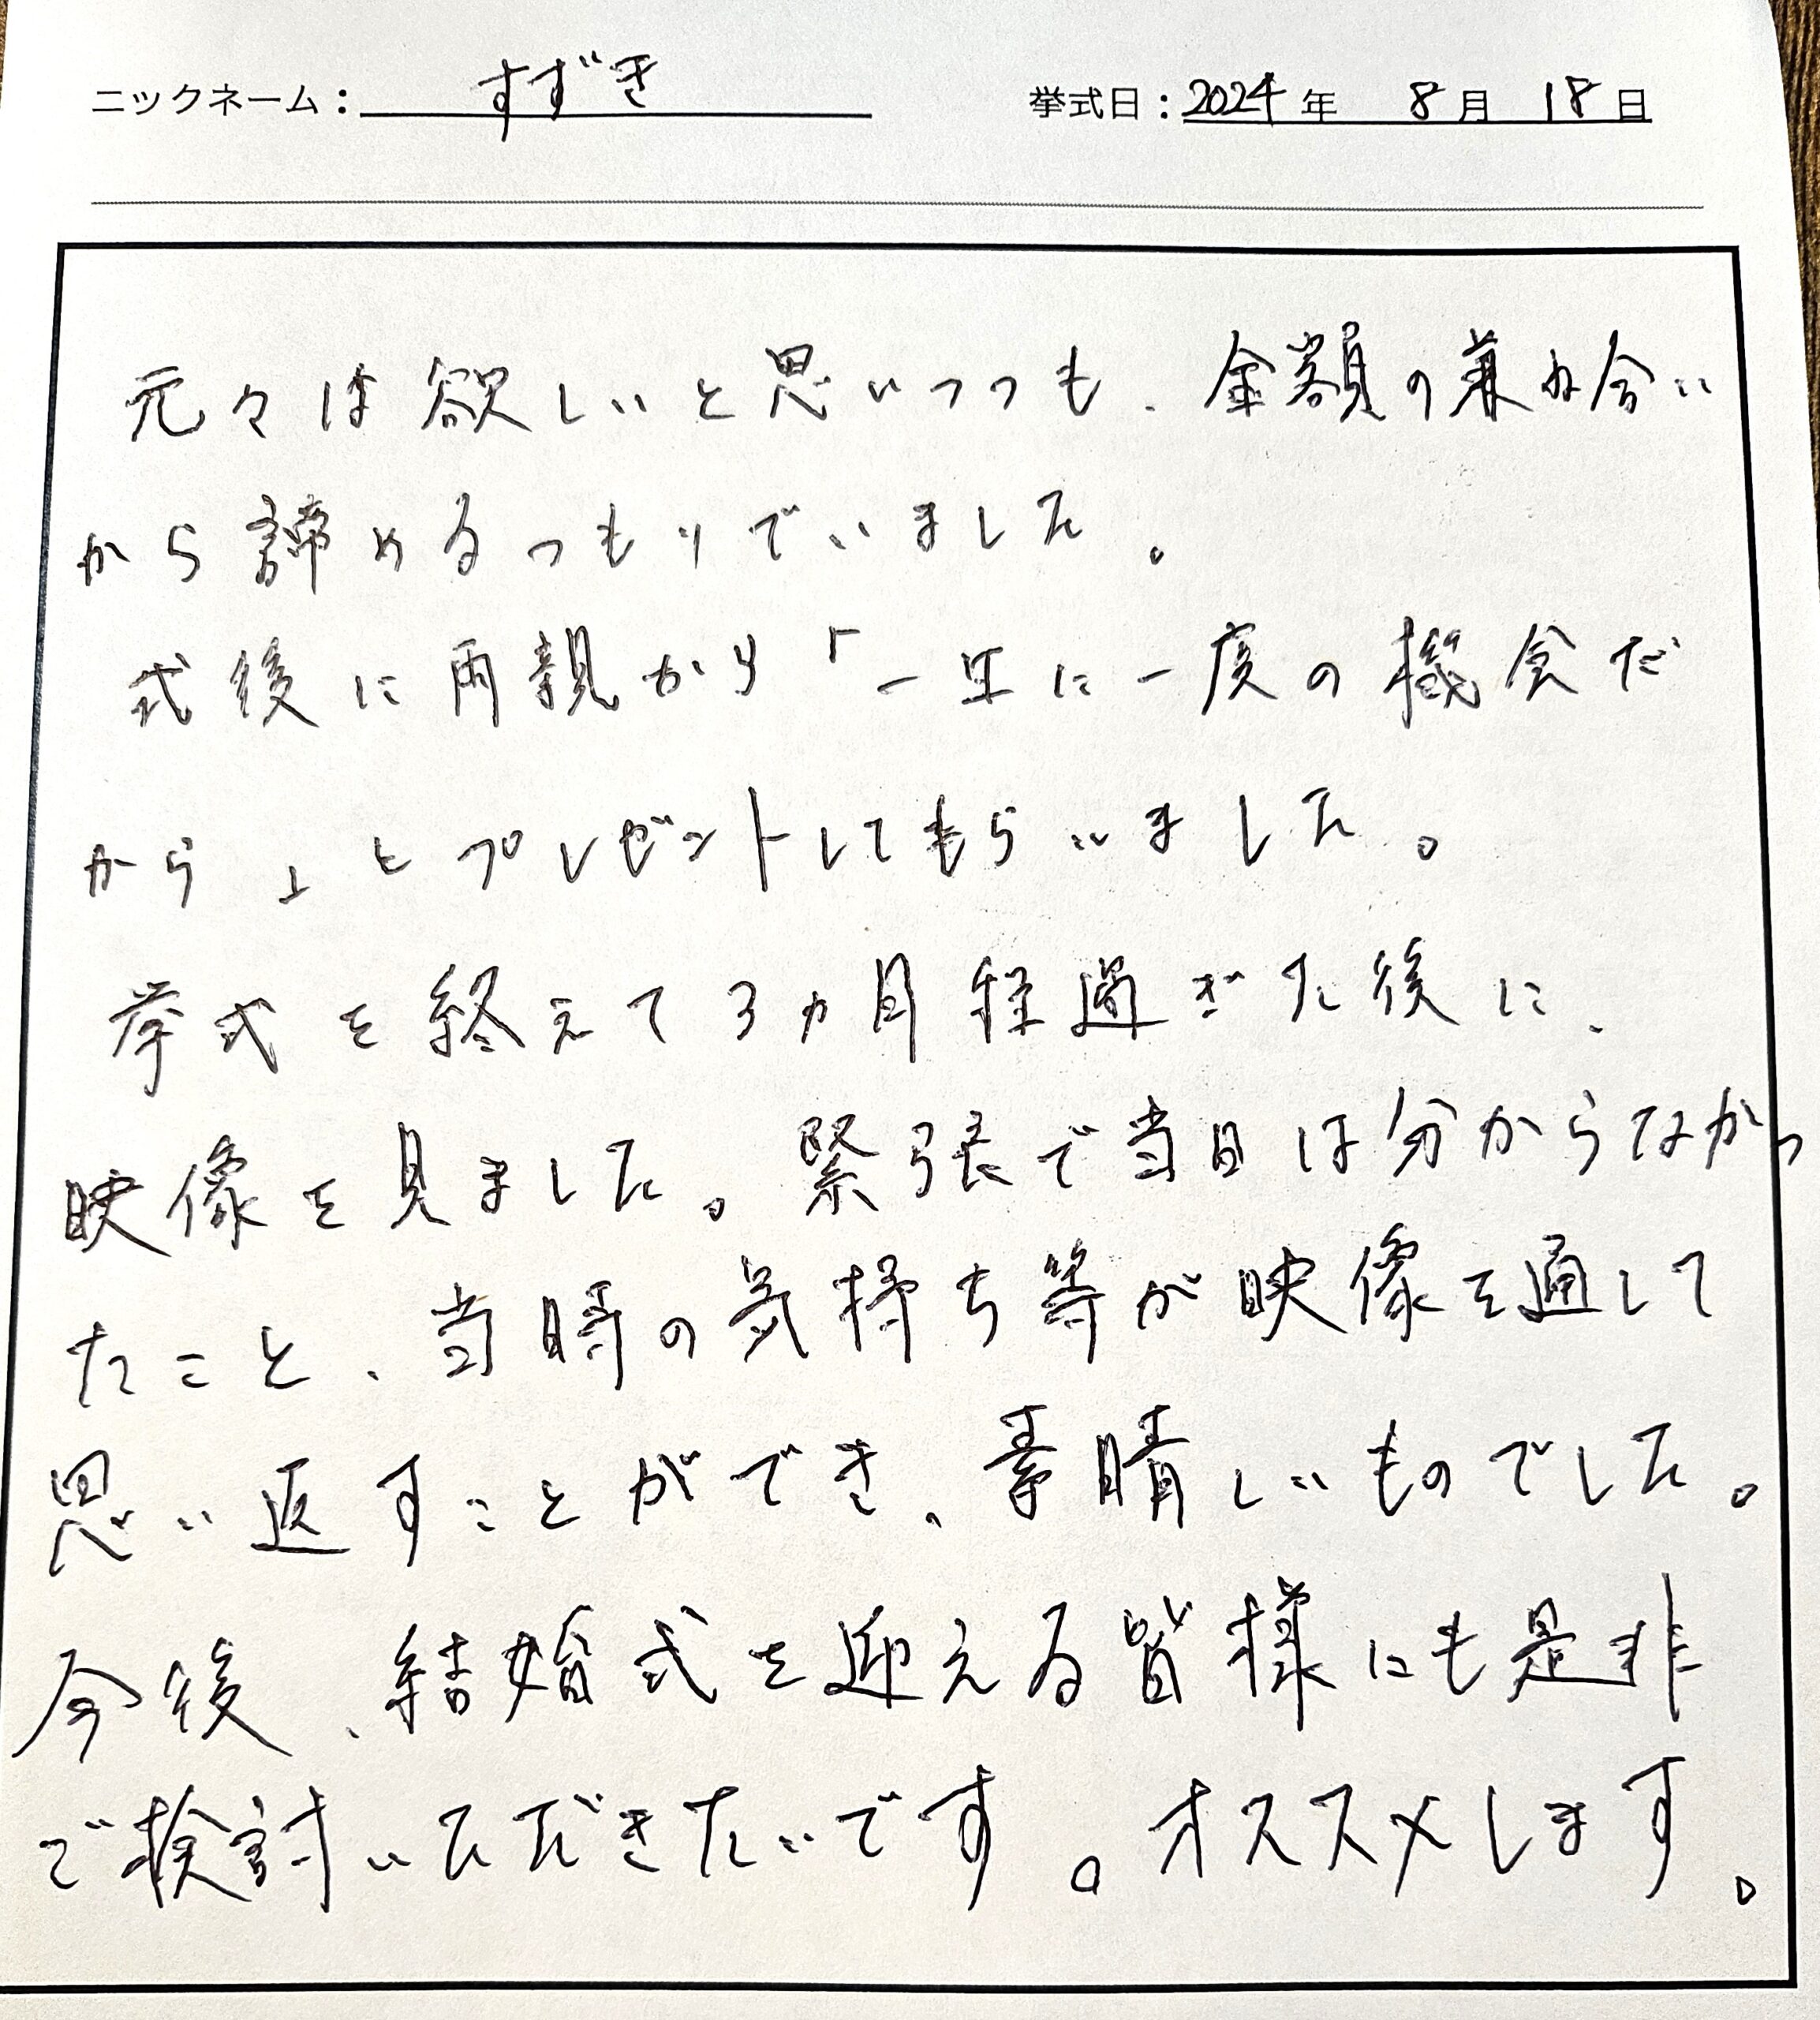 ニックネーム：すずき 挙式日：2024年 8月 18日
元々は欲しいと思いつつも、金額の兼ね合い
から諦めるつもりでいました。
式後に両親より「一生に一度の機会だ
から」とプレゼントしてもらいました。
挙式を終えて3ヵ月程過ぎた後に、
映像を見ました。緊張で当日は分からなかっ
たこと、当時の気持ち等が映像を通して
思い返すことができ、素晴しいものでした。
今後、結婚式を迎える皆様にも是非
ご検討いただきたいです。オススメします。